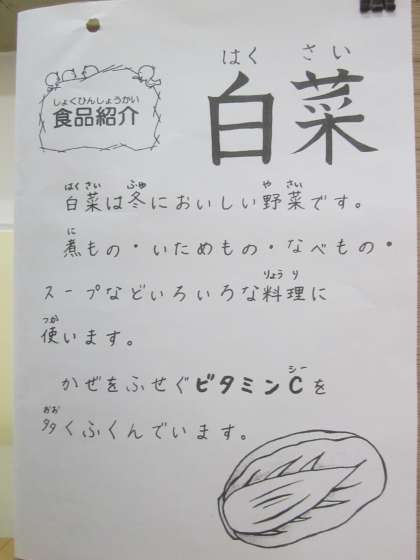 しょくひんしょうかい
食品紹介
はく さい
白菜
はく さい ふゆ や さい
白菜は冬においしい野菜です。
に
煮もの・いためもの・なべもの・
りょう り
スープなどいろいろな料理に
つか
使います。
シー
かぜをふせぐビタミンCを
おお
多くふくんでいます。